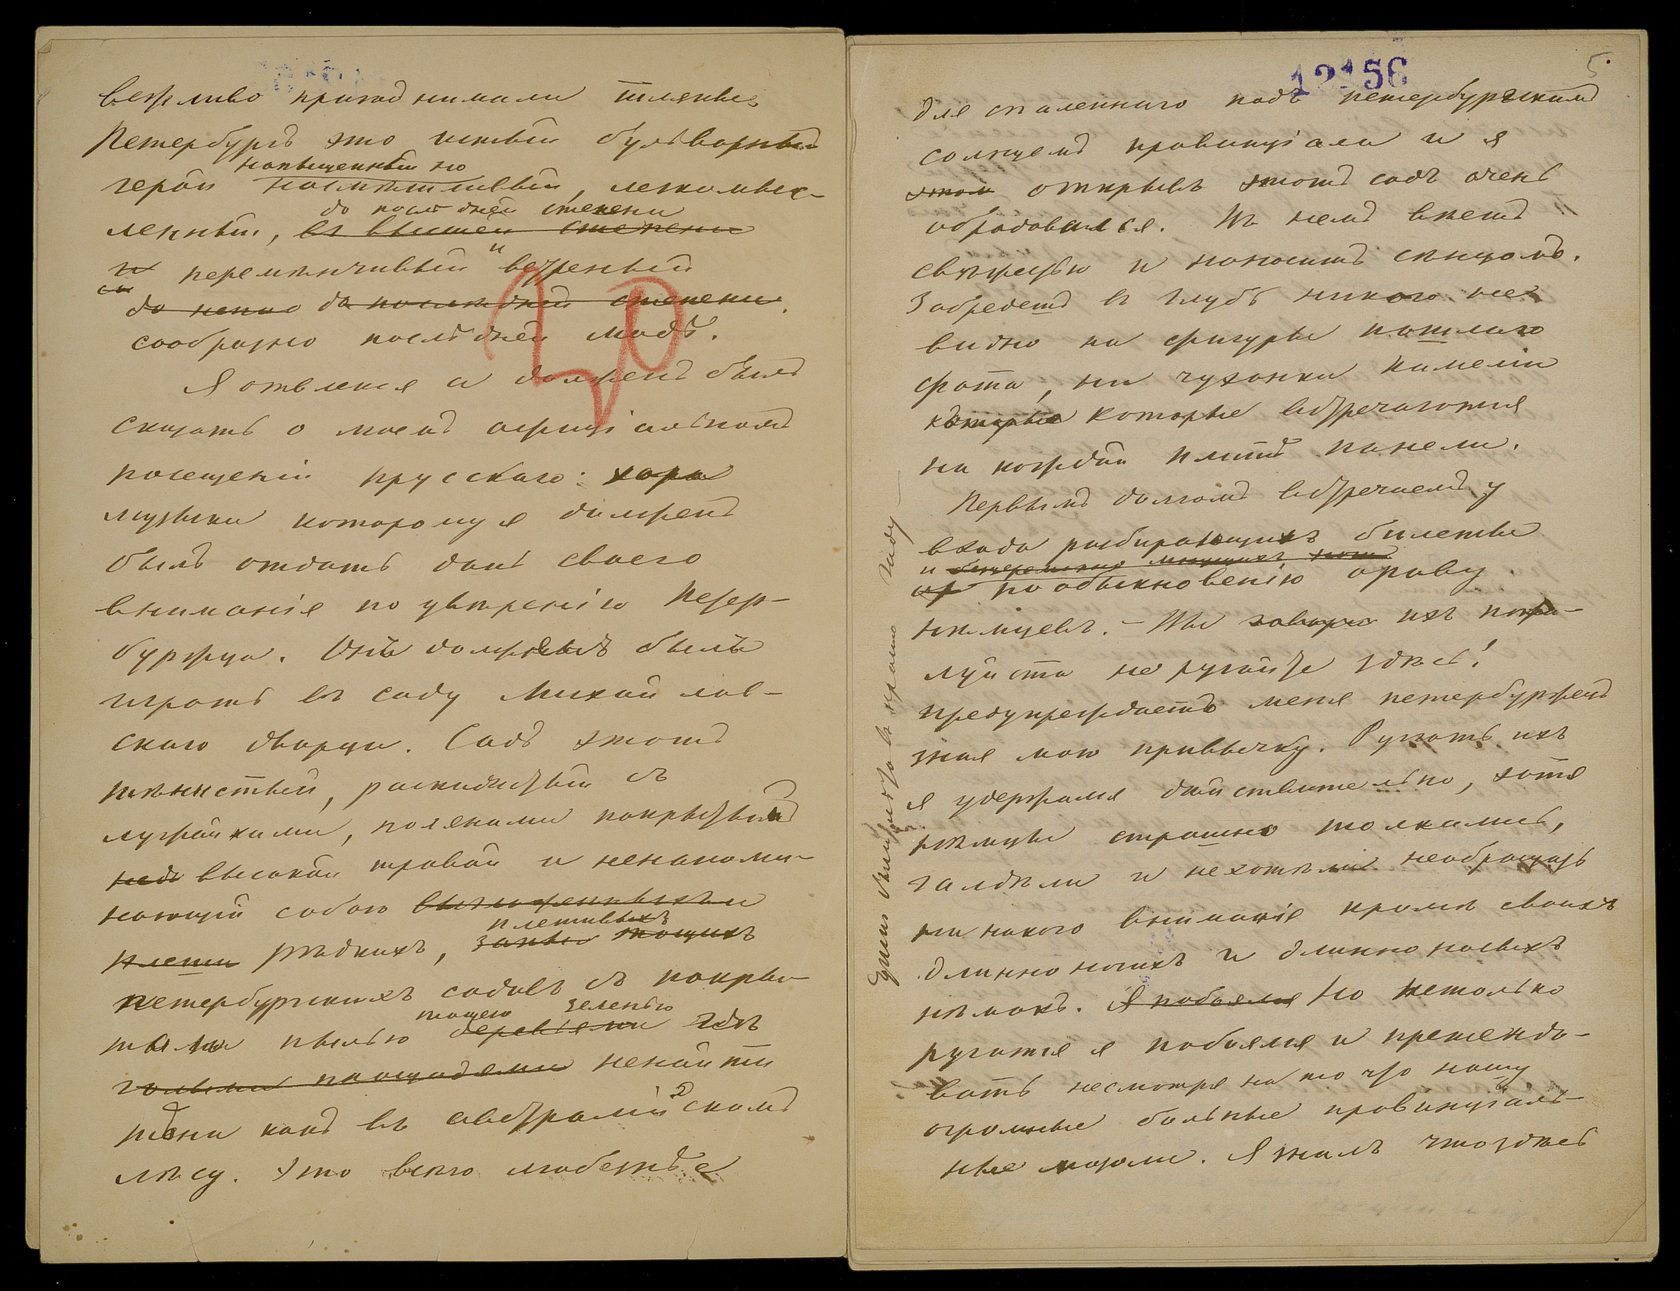 вежливо приподнимали шляпы
Петербургъ это истый бульварный
напыщенный но
герой насмѣшливый, легкомыс-
до последней степени
ленный, въ высшей степени
и перемѣнчивый и ветреный
до непо до последней степени.
сообразно последней модѣ.
Я отвлекся а долженъ былъ
сказать о моемъ офиціальномъ
посещеніи прусскаго хора
музыки которому я долженъ
былъ отдать дань своего
вниманія по увѣренію Петер-
буржца. Онъ долженъ былъ
играть въ саду Михайлов-
скаго дворца. Садъ этотъ
тѣнистый, раскидистый съ
лужайками, полянами покрытыми
высокой травой и ненапоми-
нающій собою
плешивыхъ
рѣдкихъ, тощихъ
петербургскихъ садовъ съ покры-
тощею зеленью
тыми пылью деревьями гдѣ
голыми площадями ненайти
тѣни какъ въ австралійскомъ
лѣсу. Это всего любезнѣе
12156
5.
для спаленнаго подъ петербургскимъ
солнцемъ провинціала и я
этом открывъ этотъ садъ очень
обрадовался. Въ немъ веетъ
свѣжестью и наноситъ сѣномъ.
Забредешь въ глубь никого не
видно ни фигуры пошлаго
фата, ни чухонки камеліи
которые которые встречаются
на каждой плитѣ панели.
Первымъ долгомъ встречаемъ у
входа разбирающихъ билеты
и
по обыкновенію ораву
нѣмцевъ. – Вы ихъ пожа-
луйста не ругайте здѣсь!
предупреждаетъ меня петербуржецъ
зная мою привычку. Ругать ихъ
я удержался действительно, хотя
нѣмцы страшно толкались,
галдѣли и нехотѣли необращать
ни какого вниманія кромѣ своихъ
длинноногихъ и длинноносыхъ
нѣмокъ. Я побоялся Но нетолько
ругатся я побоялся и претендо-
вать несмотря на то что ношу
огромные больные провинціаль-
ные мозоли. Я зналъ что здѣсь